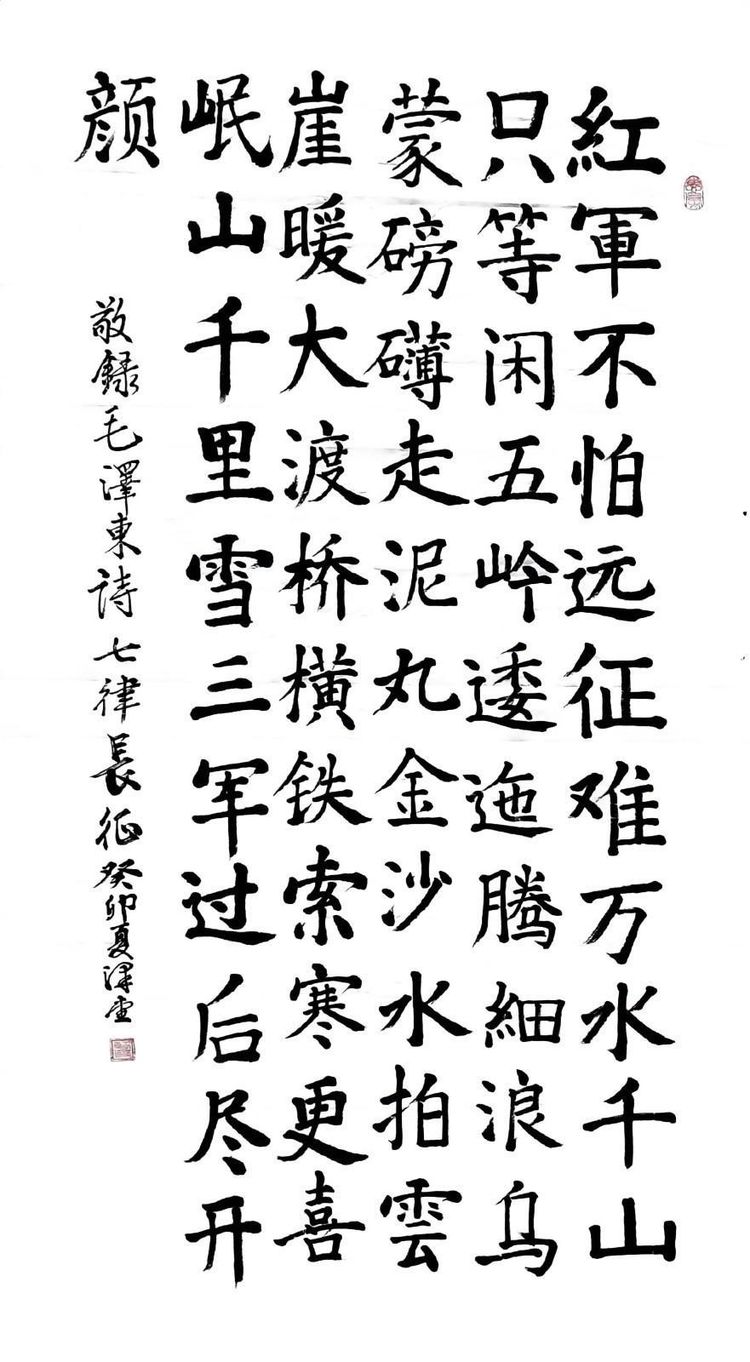 紅軍不怕远征难万水千山
只等闲五岭逶迤腾細浪乌
蒙磅礴走泥丸金沙水拍雲
崖暖大渡桥横铁索寒更喜
岷山千里雪三军过后尽开
颜
敬録毛澤東詩七律長征癸卯夏